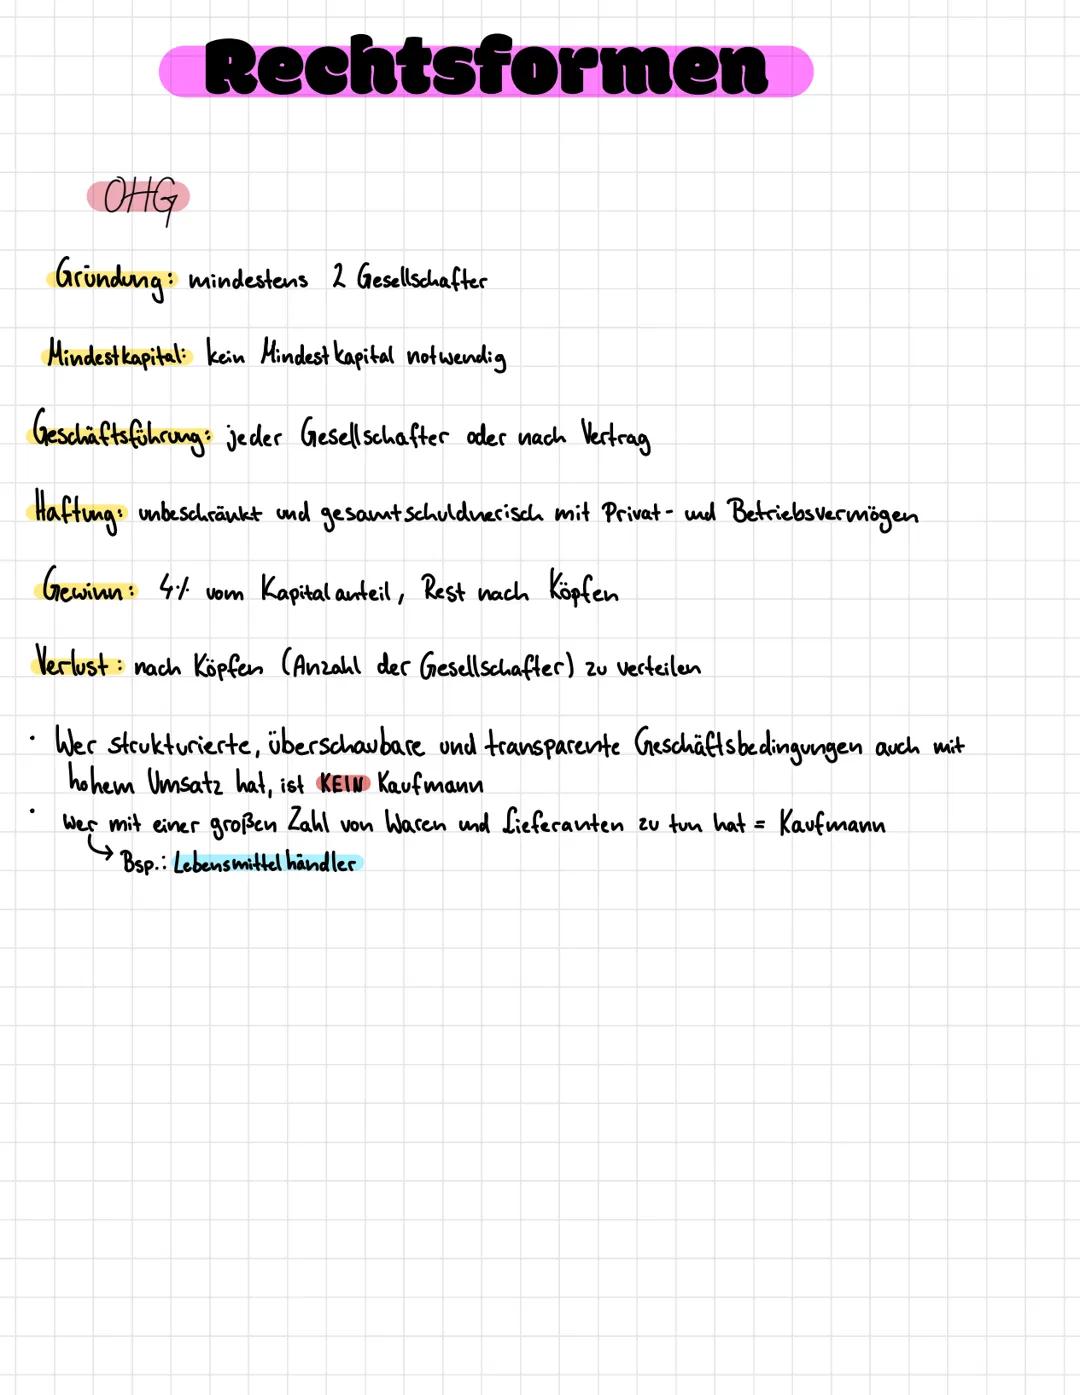 Rechtsformen
OHG
Gründung: mindestens 2 Gesellschafter
Mindestkapital: kein Mindestkapital notwendig
Geschäftsführung: jeder Gesellschafter oder nach Vertrag
Haftung: unbeschränkt und gesamtschuldnerisch mit Privat- und Betriebsvermögen
Gewinn: 4% vom Kapitalanteil, Rest nach Köpfen
Verlust: nach Köpfen (Anzahl der Gesellschafter) zu verteilen
• Wer strukturierte, überschaubare und transparente Geschäftsbedingungen auch mit
hohem Umsatz hat, ist KEIN Kaufmann
• Wer mit einer großen Zahl von Waren und Lieferanten zu tun hat = Kaufmann
↳ Bsp.: Lebensmittelhändler